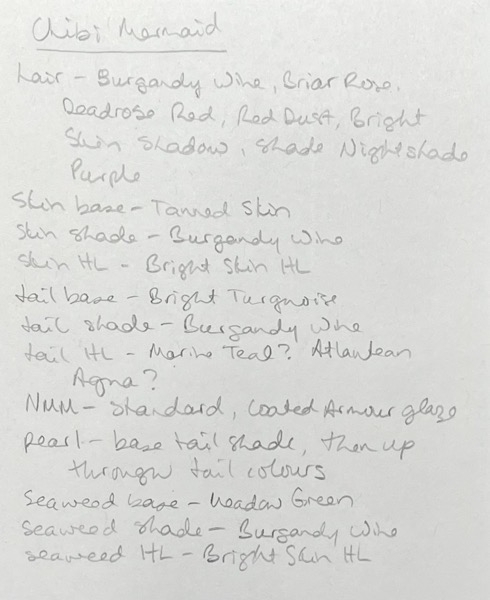 Chibi Mermaid
hair - Burgandy Wine, Briar Rose,
Deadrose Red, Red Dust, Bright
Skin Shadow, Shade Nightshade
Purple
Skin base - Tanned Skin
Skin shade - Burgandy Wine
Skin HL - Bright Skin HL
tail base - Bright Turqnoise
tail shade - Burgandy Wine
tail HL - Marine Teal? Atlantean
Aqna?
NMM - Standard, Coated Armour glaze
pearl - base tail shade, then up
through tail colours
Seaweed base - Meadow Green
seaweed shade - Burgandy Wine
seaweed HL - Bright Skin HL